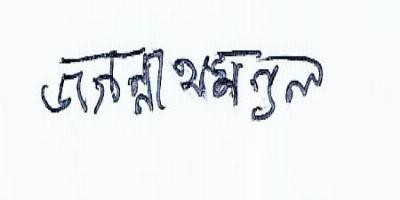 জগন্নাথ মণ্ডল